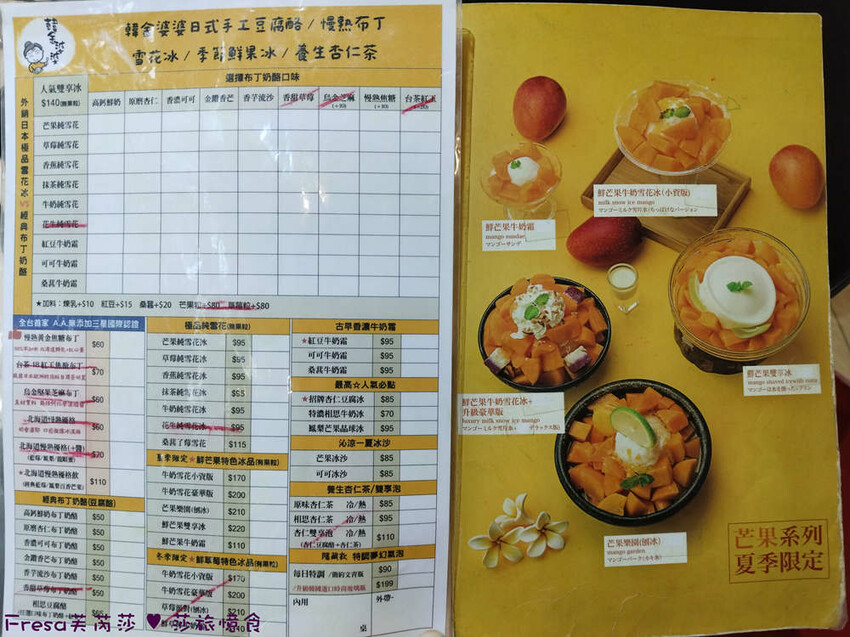 韓金婆婆
韓金婆婆日式手工豆腐酪 / 慢熟布丁
雪花冰 / 季節鮮果冰 / 養生杏仁茶
選擇布丁奶酪口味
人氣雙享冰
$140(無果粒)
高鈣鮮奶
原磨杏仁
香濃可可
金鑽香芒
香芋流沙
香甜草莓
烏金芝麻
(+10)
慢熟焦糖
(+10)
台茶紅玉
(+20)
外銷日本極品雪花冰VS經典布丁奶酪
芒果純雪花
草莓純雪花
香蕉純雪花
抹茶純雪花
牛奶純雪花
花生純雪花
紅豆牛奶霜
可可牛奶霜
桑葚牛奶霜
★加料:煉乳+$10 紅豆+$15 桑葚+$20 芒果粒+$80 草莓粒+$80
全台首家 A.A.無添加三星國際認證
慢熟黃金焦糖布丁 $60
台茶18紅玉焦糖布丁 $70
烏金堅果芝麻布丁 $60
北海道慢熟優格 $60
北海道慢熟優格(+醬) $70
(藍莓/鳳梨/蔓越莓)
★北海道慢熟優格飲 $110
(經典藍莓/鳳梨百香芒果)
經典布丁奶酪(豆腐酪)
高鈣鮮奶布丁奶酪 $50
原磨杏仁布丁奶酪 $50
香濃可可布丁奶酪 $50
金鑽香芒布丁奶酪 $50
香芋流沙布丁奶酪 $50
香甜草莓布丁奶酪 $50
相思豆腐酪
極品純雪花(無果粒)
芒果純雪花冰 $95
草莓純雪花冰 $95
香蕉純雪花冰 $95
抹茶純雪花冰 $95
牛奶純雪花冰 $95
花生純雪花冰 $95
桑葚丁莓雪花 $115
夏季限定★鮮芒果特色冰品(有果粒)
牛奶雪花小資版 $170
牛奶雪花豪華版 $200
芒果樂園(刨冰) $210
鮮芒果雙享冰 $220
鮮芒果牛奶霜 $110
冬季限定★鮮草莓特色冰品(有果粒)
牛奶雪花小資版 $170
牛奶雪花豪華版 $200
$210
古早香濃牛奶霜
★紅豆牛奶霜 $95
可可牛奶霜 $95
桑葚牛奶霜 $95
最高☆人氣必點
★招牌杏仁豆腐冰 $85
特濃相思牛奶冰 $70
鳳梨芒果晶球冰 $85
沁涼一夏冰沙
芒果冰沙 $85
可可冰沙 $85
養生杏仁茶/雙享泡
原味杏仁茶 冷/熱 $85
相思杏仁茶 冷/熱 $95
杏仁雙享泡 冷/熱 $110
(杏仁豆腐酪+杏仁茶)
隱藏飲 特調夢幻氣泡
每日特調 /簡約文青瓶 $90
$199
內用 外帶
桌
鮮芒果牛奶雪花冰(小資版)
milk snow ice mango
鮮芒果牛奶霜
mango sundae
マンゴーサンデ
鮮芒果雙享冰
鮮芒果牛奶雪花冰+
升級豪華版
luxury milk snow ice mango
芒果樂園(刨冰)
mango garden
芒果系列
夏季限定
Fresa芙芮莎♥莎旅憶食